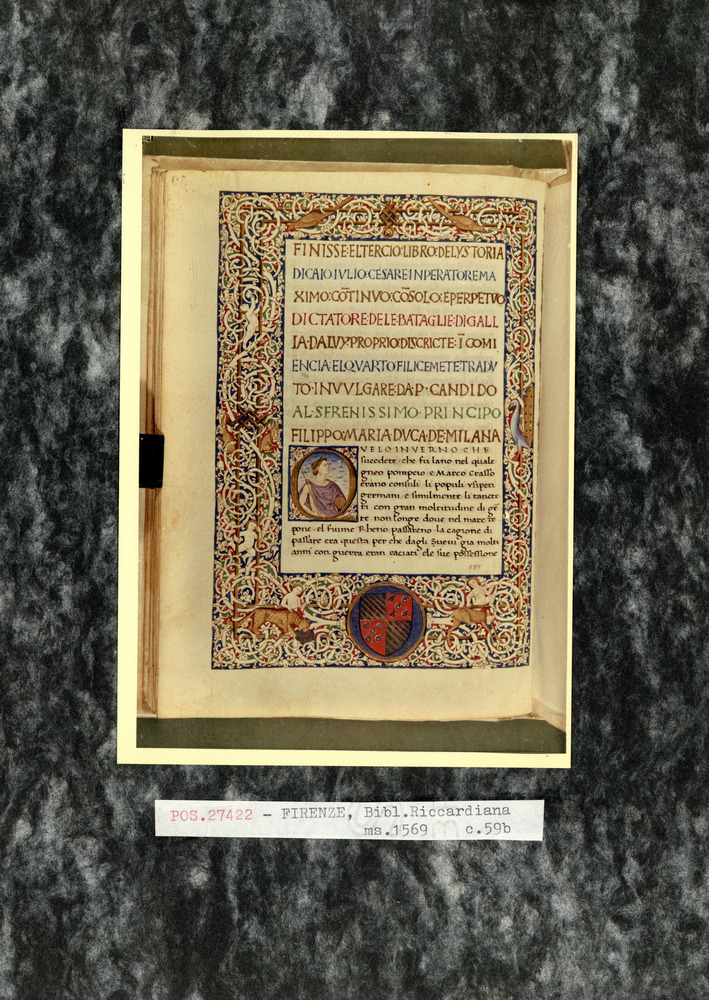 FINISSE·EL·TERCIO·LIBRO·DELYSTORIA
DICAIO IVLIO CESARE INPERATORE MA
XIMO·CŌTINVO·CŌSOLO·E PERPETVO
DICTATORE·DELE·BATAGLIE·DI GALL
IA·DA LVY·PROPRIO·DISCRICTE·Ī COMI
ENCIA·EL QVARTO FILICEMETE TRADV
TO·IN VVLGARE·DA·P·CANDIDO
AL·SERENISSIMO·PRINCIPO
FILIPPO·MARIA DVCA·DE·MILANA
VELO INVERNO CHE
succedete che fu lano nel quale
gneo pompeio e Marco Crasso
erano consuli li populi vsipeti
germani e similmente li tancte
ri con gran moltitudine di gē
te non longe doue nel mare re
pone el fiume Rheno passareno la cagione di
passare era questa per che dagli Sueui gia molti
anni con guerra eran caciati ele sue possessione
POS.27422 - FIRENZE, Bibl.Riccardiana
ms.1569 c.59b